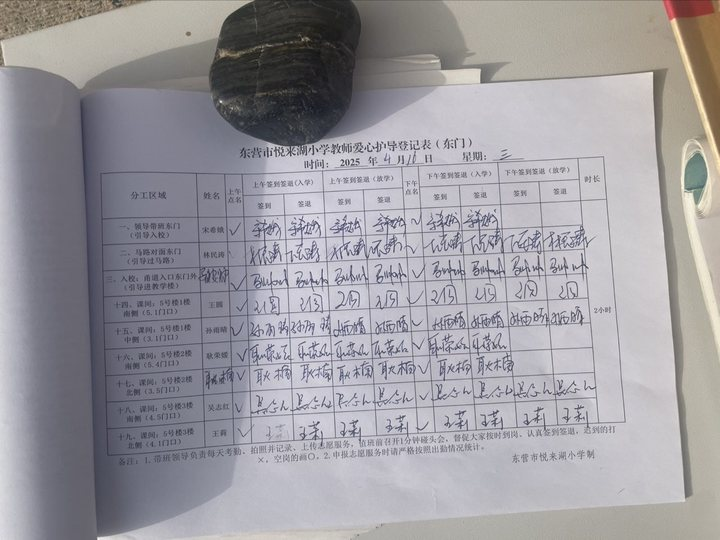 东营市悦来湖小学教师爱心护导登记表（东门）
时间： 2025 年 4 月 16 日 星期： 三
分工区域 姓名 上午点名 上午签到签退（入学） 上午签到签退（放学） 下午点名 下午签到签退（入学） 下午签到签退（放学） 时长
签到 签退 签到 签退 签到 签退 签到 签退
一、领导带班东门
（引导入校） 宋希娥 ✓
二、马路对面东门
（引导过马路） 林民涛 ✓ ✓
三、入校：甬道入口东门外
（引导进教学楼） ✓ ✓
十四、课间：5号楼1楼
南侧（5.1门口） 王圆 ✓ 王圆 王圆 王圆 王圆 ✓ 王圆 王圆 王圆 王圆
十五、课间：5号楼1楼
中侧（3.1门口） 孙雨晴 ✓ 孙雨晴 孙雨晴 孙雨晴 孙雨晴 ✓ 孙雨晴 孙雨晴 孙雨晴 孙雨晴
2小时
十六、课间：5号楼2楼
南侧（5.4门口） 耿荣媛 ✓ 耿荣媛 耿荣媛 耿荣媛 耿荣媛 ✓ 耿荣媛 耿荣媛
十七、课间：5号楼2楼
北侧（3.5门口） 耿楠 ✓ 耿楠 耿楠 耿楠 耿楠 ✓ 耿楠 耿楠
十八、课间：5号楼3楼
南侧（4.5门口） 吴志红 ✓ ✓
十九、课间：5号楼3楼
北侧（4.1门口） 王莉 ✓ 王莉 王莉 王莉 王莉 ✓ 王莉 王莉 王莉 王莉
备注：1.带班领导负责每天考勤、拍照并记录、上传志愿服务，值班前召开1分钟碰头会，督促大家按时到岗、认真签到签退，迟到的打
×，空岗的画○。2.申报志愿服务时请严格按照出勤情况统计。
东营市悦来湖小学制